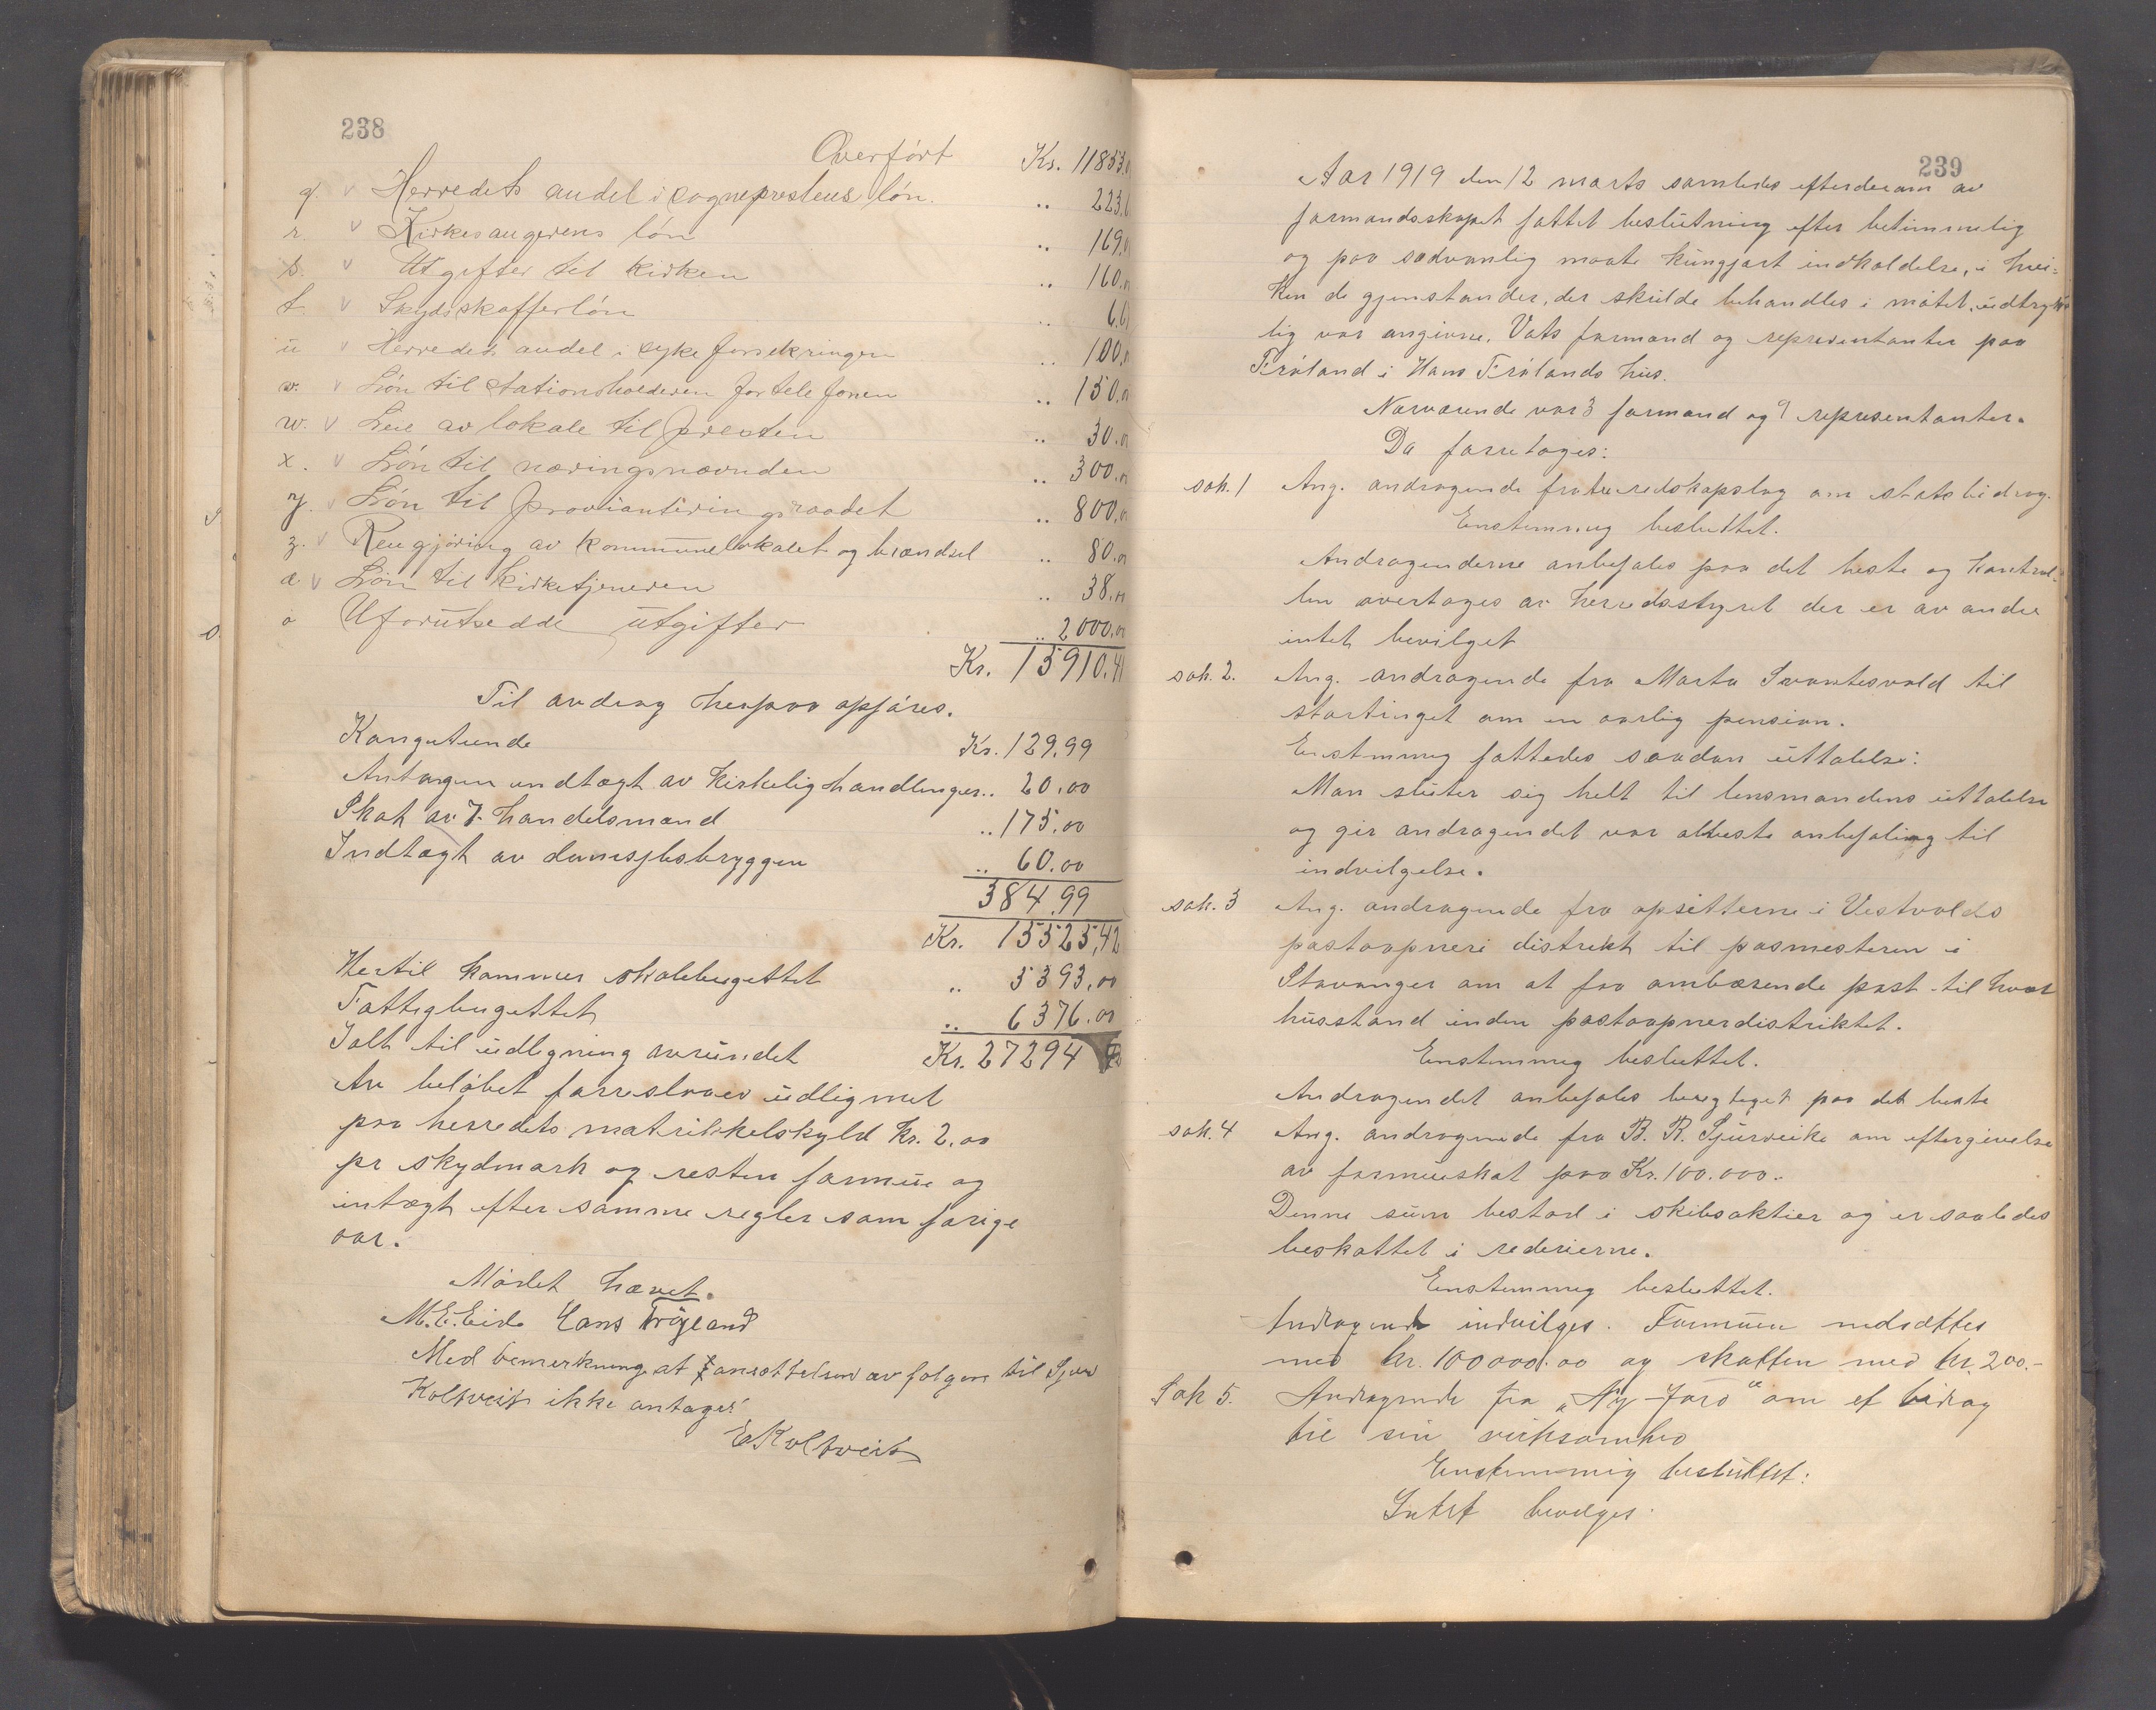 238
Overført Kr. 11853.
q. v Herredets andel i sogneprestens løn. .. 223.
r. v Kirkesangerens løn .. 169.
s. v Utgifter til kirken .. 160.
t. v Skydsskafferløn .. 6.6
u v Herredets andel i sykeforsikringen .. 100.
v. v Løn til stationsholderen for telefonen .. 150.
w. v Leie av lokale til presten .. 30.
x. v Løn til næringsnævnden .. 300.
y. v Løn til provianteringsraadet .. 800.
z. v Rengjøring av kommunelokalet og brændsel .. 80.
æ v Løn til kirketjeneren .. 38.
ø Uforutsedde utgifter .. 2000.00
Kr. 15910.41
Til avdrag herpaa opføres.
Kongetiende Kr. 129.99
Antagen indtægt av kirkelig handlinger .. 20.00
Skat av 7 handelsmænd .. 175.00
Indtægt av dampskibsbryggen .. 60.00
384.99
Kr. 15525,42
Hertil kommer skolebugettet .. 5393.00
Fattigbugettet .. 6376.00
Ialt til udligning avrundet Kr. 27294
Av beløbet forreslaaes udlignet
paa herredets matrikkelskyld kr. 2.00
pr skydmark og resten formue og
intægt efter samme regler som forige
aar.
Mødet hævet.
M.E. Eide Hans Frøland
Med bemerkning at ansættelsen av følgen til Sjur
Koltveit ikke antages
E Koltveit
239
Aar 1919 den 12 marts samledes efter den av
formandsskapet fattet beslutning efter betimmelig
og paa sædvanlig maate kungjort indkaldelse, i hvil-
ken de gjenstander, der skulde behandles i møtet, udtrykke
lig var angivne. Vats formand og representanter paa
Frøland i Hans Frølands hus.
Nærværende var 3 formænd og 9 representanter.
Da forretoges:
sak. 1 Ang. andragende fra redskapslag om statsbidrag.
Enstemmig besluttet.
Andragenderne anbefales paa det beste og kontrol-
len overtages av herredsstyret der er av andre
intet bevilget
sak. 2. Ang. andragende fra Marta Svantesvold til
stortinget om en aarlig pension.
Enstemmig fattedes saadan uttalelse:
Man slutter sig helt til lensmandens uttalelse
og gir andragendet vor alleste anbefaling til
indvilgelse.
sak. 3 Ang. andragende fra opsitterne i Vestvolds
postaapneri distrikt til posmesteren i
Stavanger om at faa ombærende post til hver
husstand inden postaapnerdistriktet.
Enstemmig besluttet.
Andragendet anbefales paa det beste
sak. 4 Ang. andragende fra B. R. Sjurseike om eftergivelse
av formueskat paa Kr. 100.000.-
Denne sum bestod i skibsaktier og er saaledes
beskattet i rederierne.
Enstemmig besluttet.
Andragende indvilges. Formuen nedsættes
med kr. 100000.00 og skatten med kr. 200.-
Sak 5. Andragende fra "Ny-Jord" om et bidrag
til sin virksomhed
Enstemmig besluttet:
Intet bevilges.